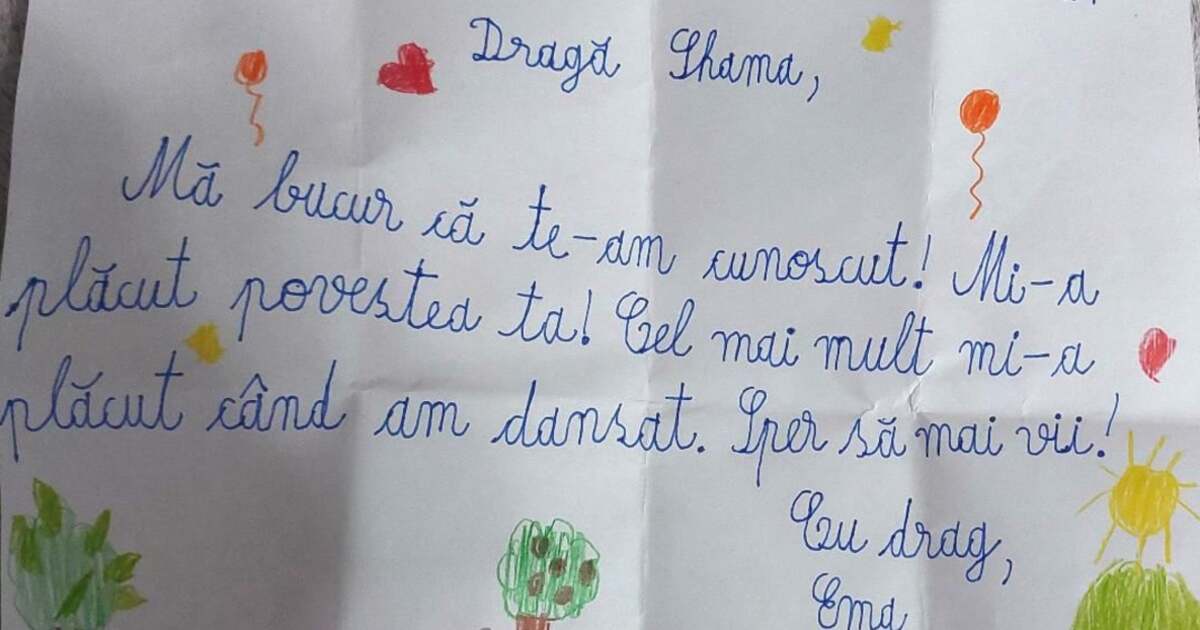 Dragă Shama,
Mă bucur că te-am cunoscut! Mi-a
plăcut povestea ta! Cel mai mult mi-a
plăcut când am dansat. Sper să mai vii!
Cu drag,
Ema